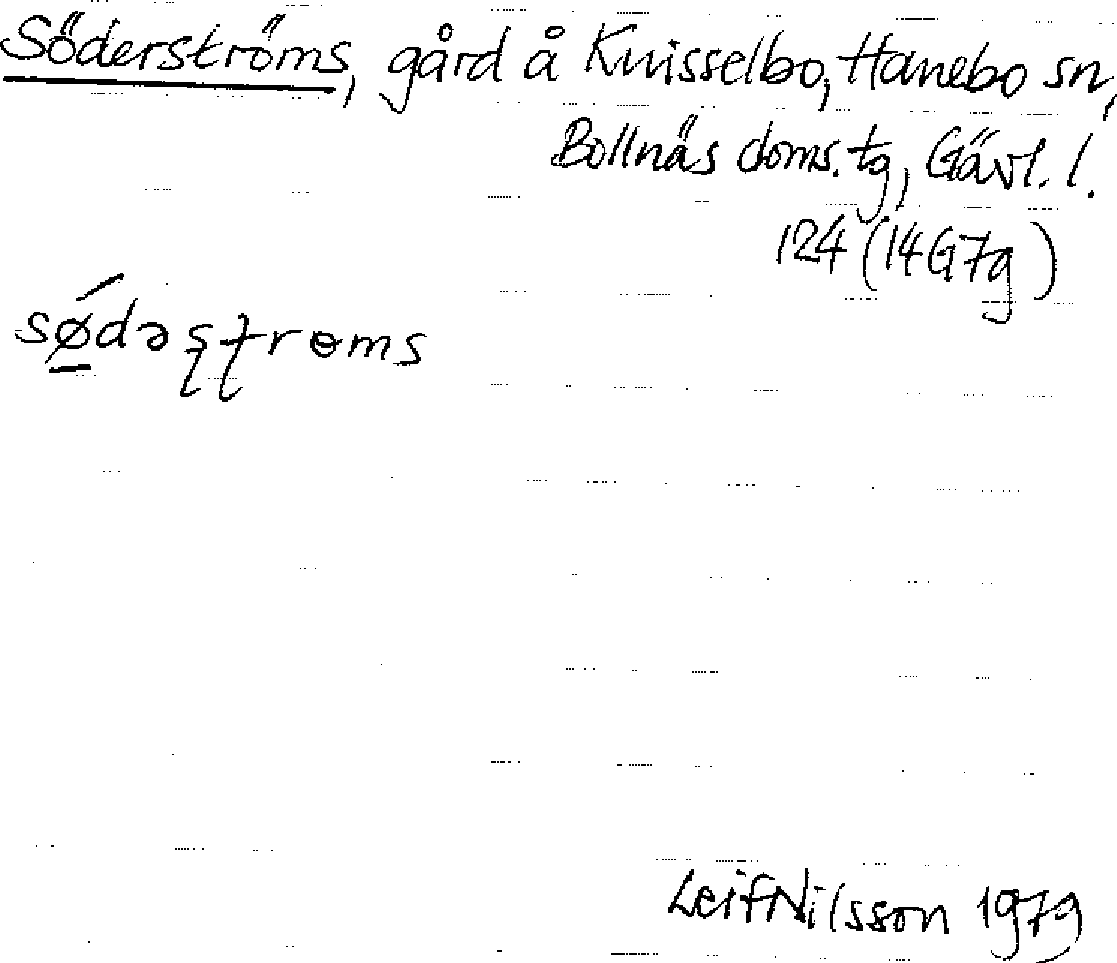 Söderströms, gård å Knisselbo, Hanebo sn,
Bollnäs doms. tg, Gävl. l.
124 (14G7g)
sǿ̲dəʂʈrɵms
Leif Nilsson 1979